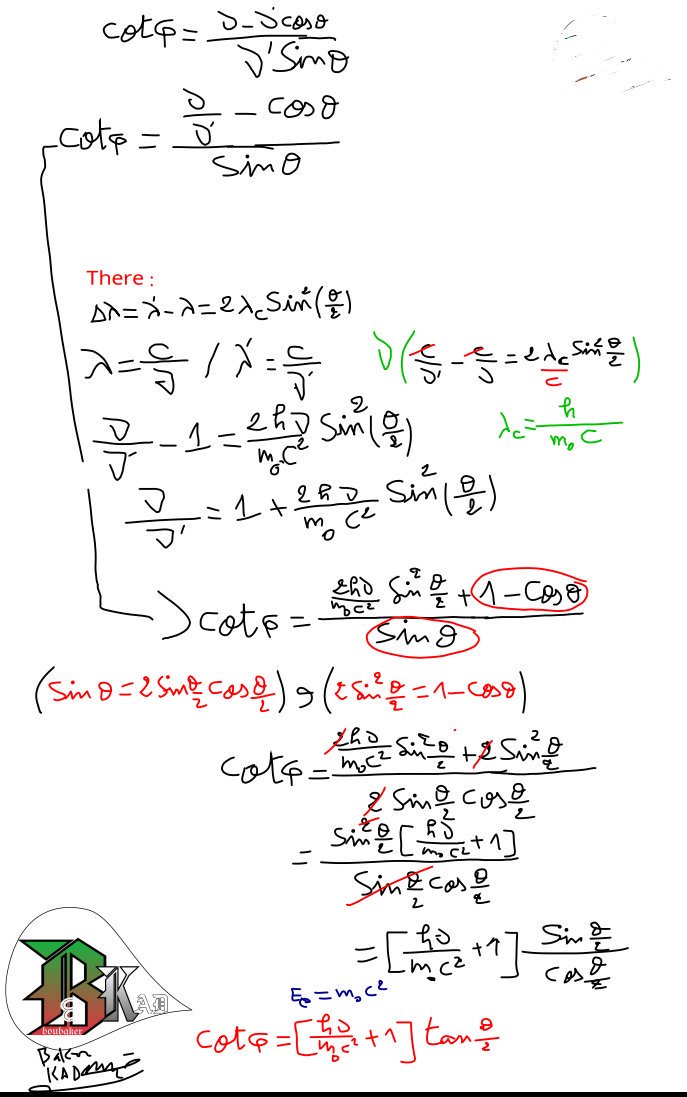 cotφ = (ν - ν' cosθ) / (ν' Sinθ)
cotφ = (ν/ν' - cosθ) / Sinθ
There :
Δλ = λ' - λ = 2λc Sin²(θ/2)
λ = c/ν / λ' = c/ν'
ν(c/ν' - c/ν = 2λc/c Sin² θ/2)
ν/ν' - 1 = 2hν/m₀c² Sin²(θ/2)
λc = h/m₀ c
ν/ν' = 1 + 2hν/m₀ c² Sin²(θ/2)
cotφ = (2hν/m₀c² Sin² θ/2 + 1 - cosθ) / Sinθ
(Sinθ = 2Sinθ/2 cosθ/2) و (2Sin² θ/2 = 1 - cosθ)
cotφ = (2hν/m₀c² Sin² θ/2 + 2Sin² θ/2) / (2 Sin θ/2 cos θ/2)
= (Sin² θ/2 [hν/m₀c² + 1]) / (Sin θ/2 cos θ/2)
= [hν/m₀c² + 1] Sin θ/2 / cos θ/2
E₀ = m₀c²
cotφ = [hν/m₀c² + 1] tan θ/2
BKAD
boubaker